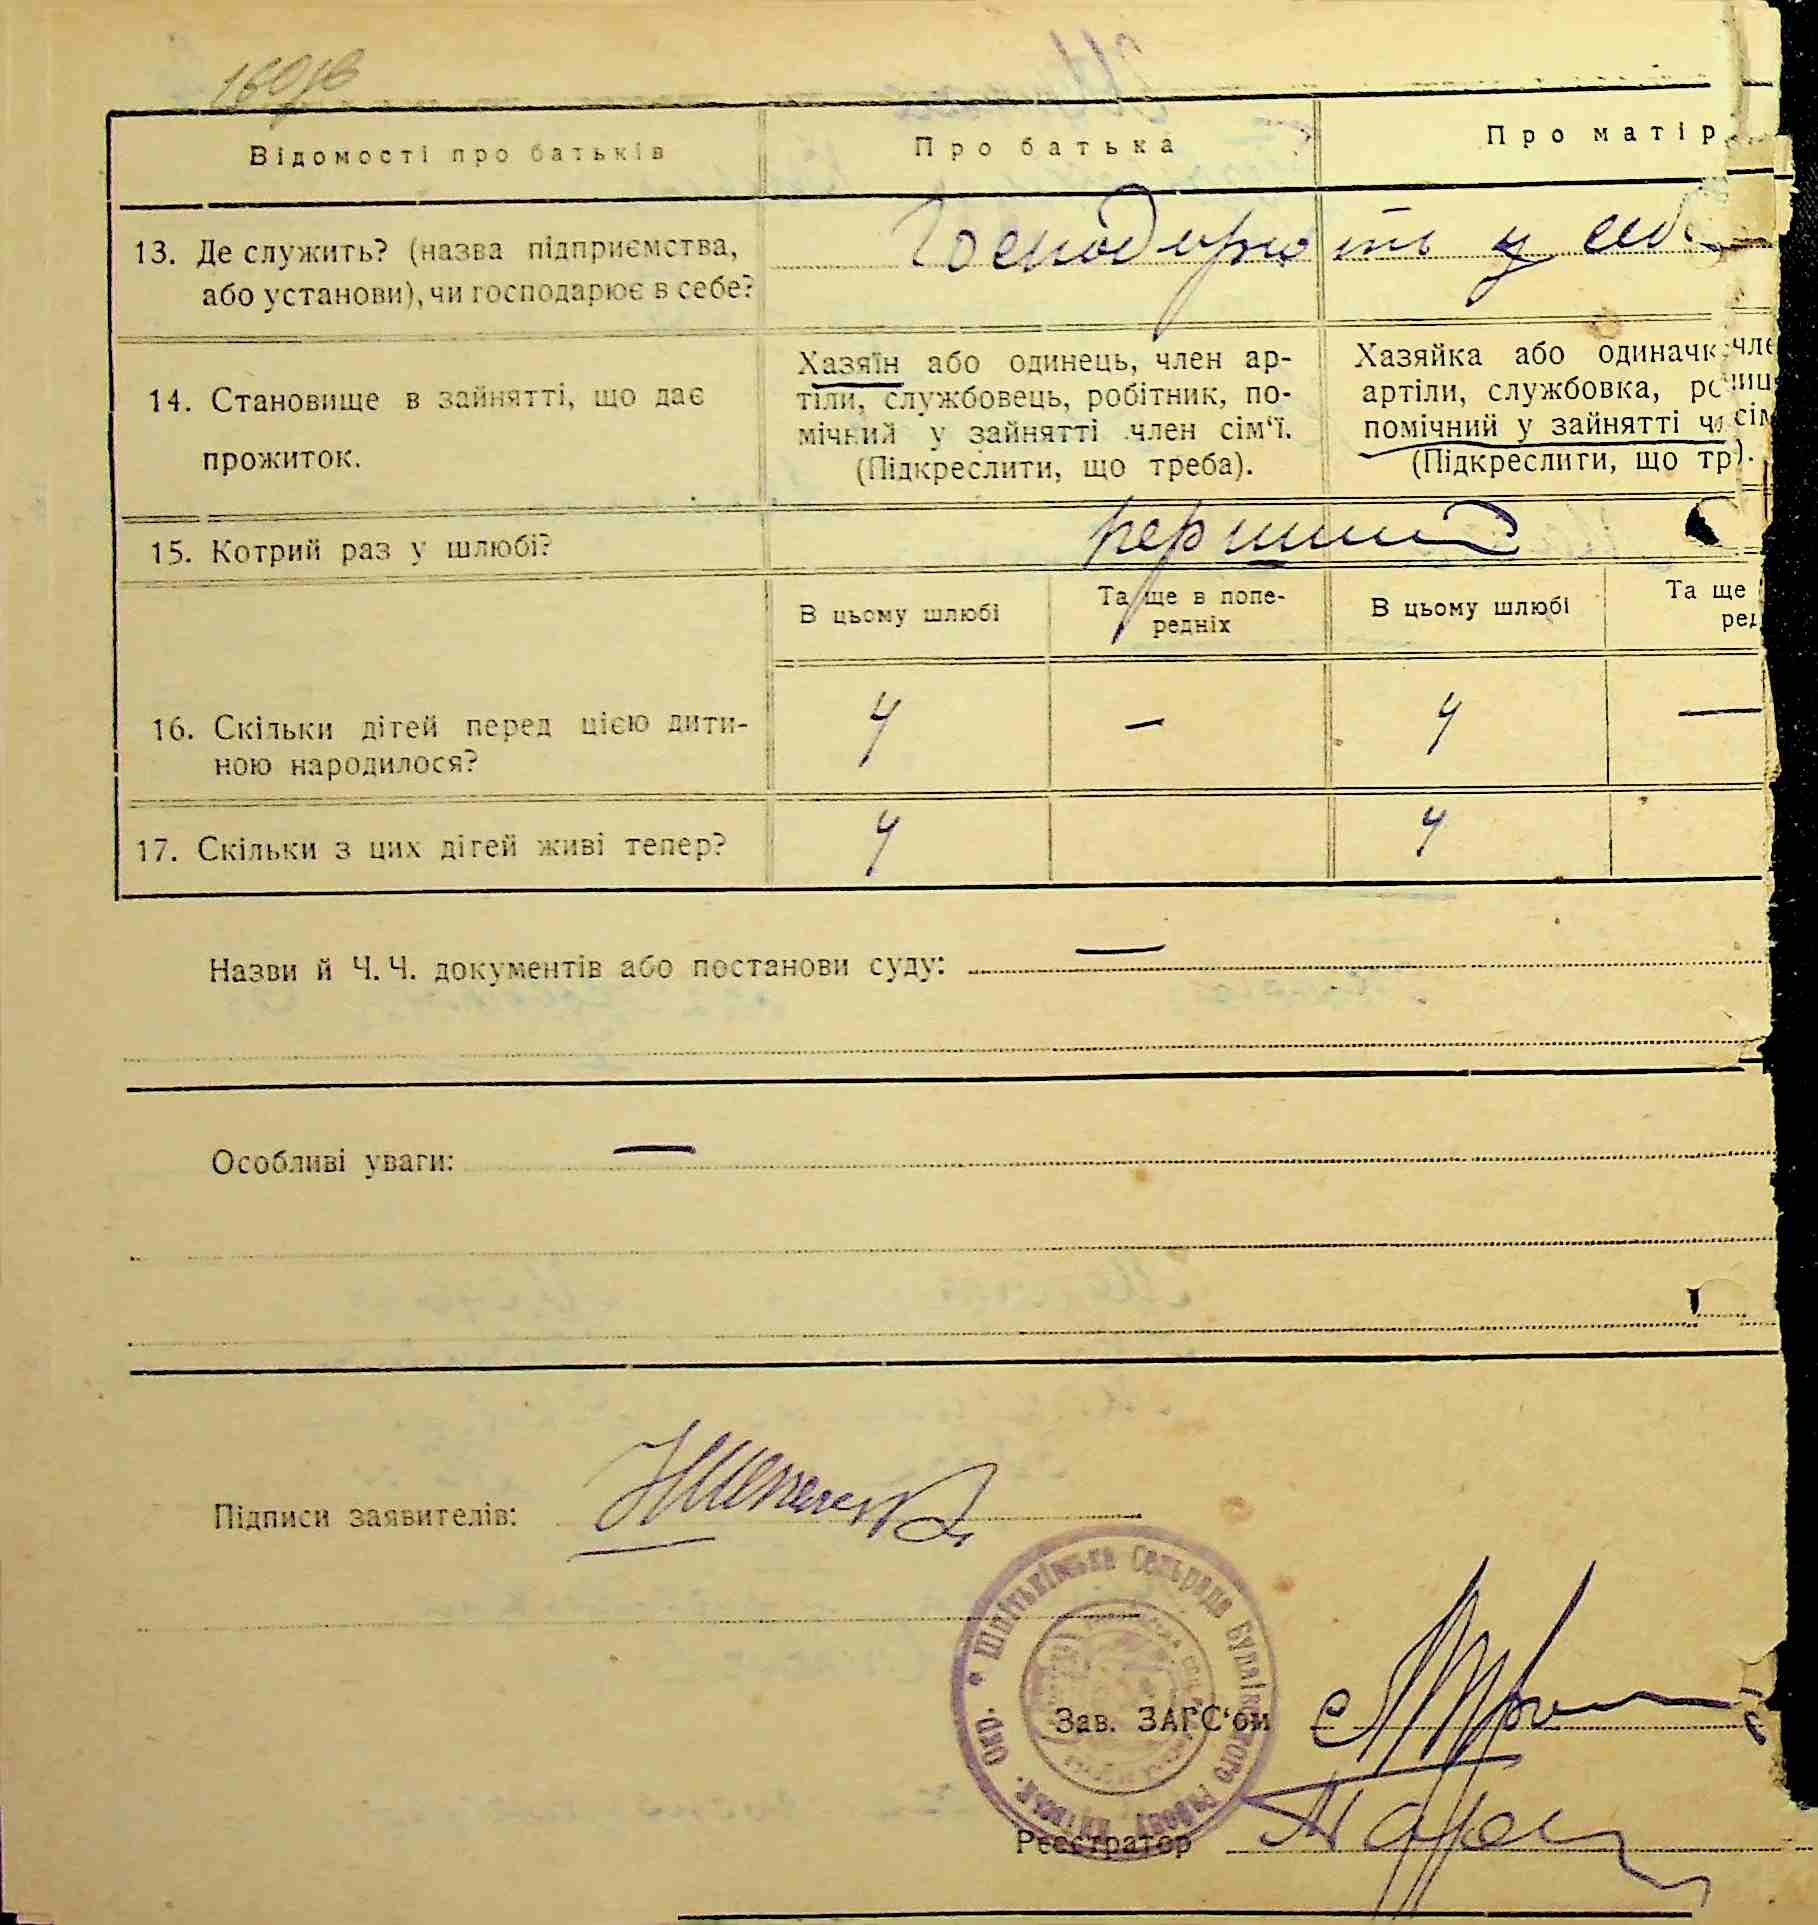 Відомості про батьків
Про батька
Про матір
13. Де служить? (назва підприємства,
або установи), чи господарює в себе?
Господарють у себе
14. Становище в зайнятті, що дає
прожиток.
Хазяїн або одинець, член ар-
тіли, службовець, робітник, по-
мічний у зайнятті член сім'ї.
(Підкреслити, що треба).
Хазяйка або одиначк чле
артіли, службовка, ро ниц
помічний у зайнятті ч сім
(Підкреслити, що тр ).
15. Котрий раз у шлюбі?
перший
В цьому шлюбі
Та ще в попе-
редніх
В цьому шлюбі
Та ще
ред
16. Скільки дітей перед цією дити-
ною народилося?
4 — 4 —
17. Скільки з цих дітей живі тепер?
4 4
Назви й Ч. Ч. документів або постанови суду: —
Особливі уваги: —
Підписи заявителів:
Шпітьківська Сельрада Будаївського району Київськ. Окр.
Зав. ЗАГС'ом
Реєстратор